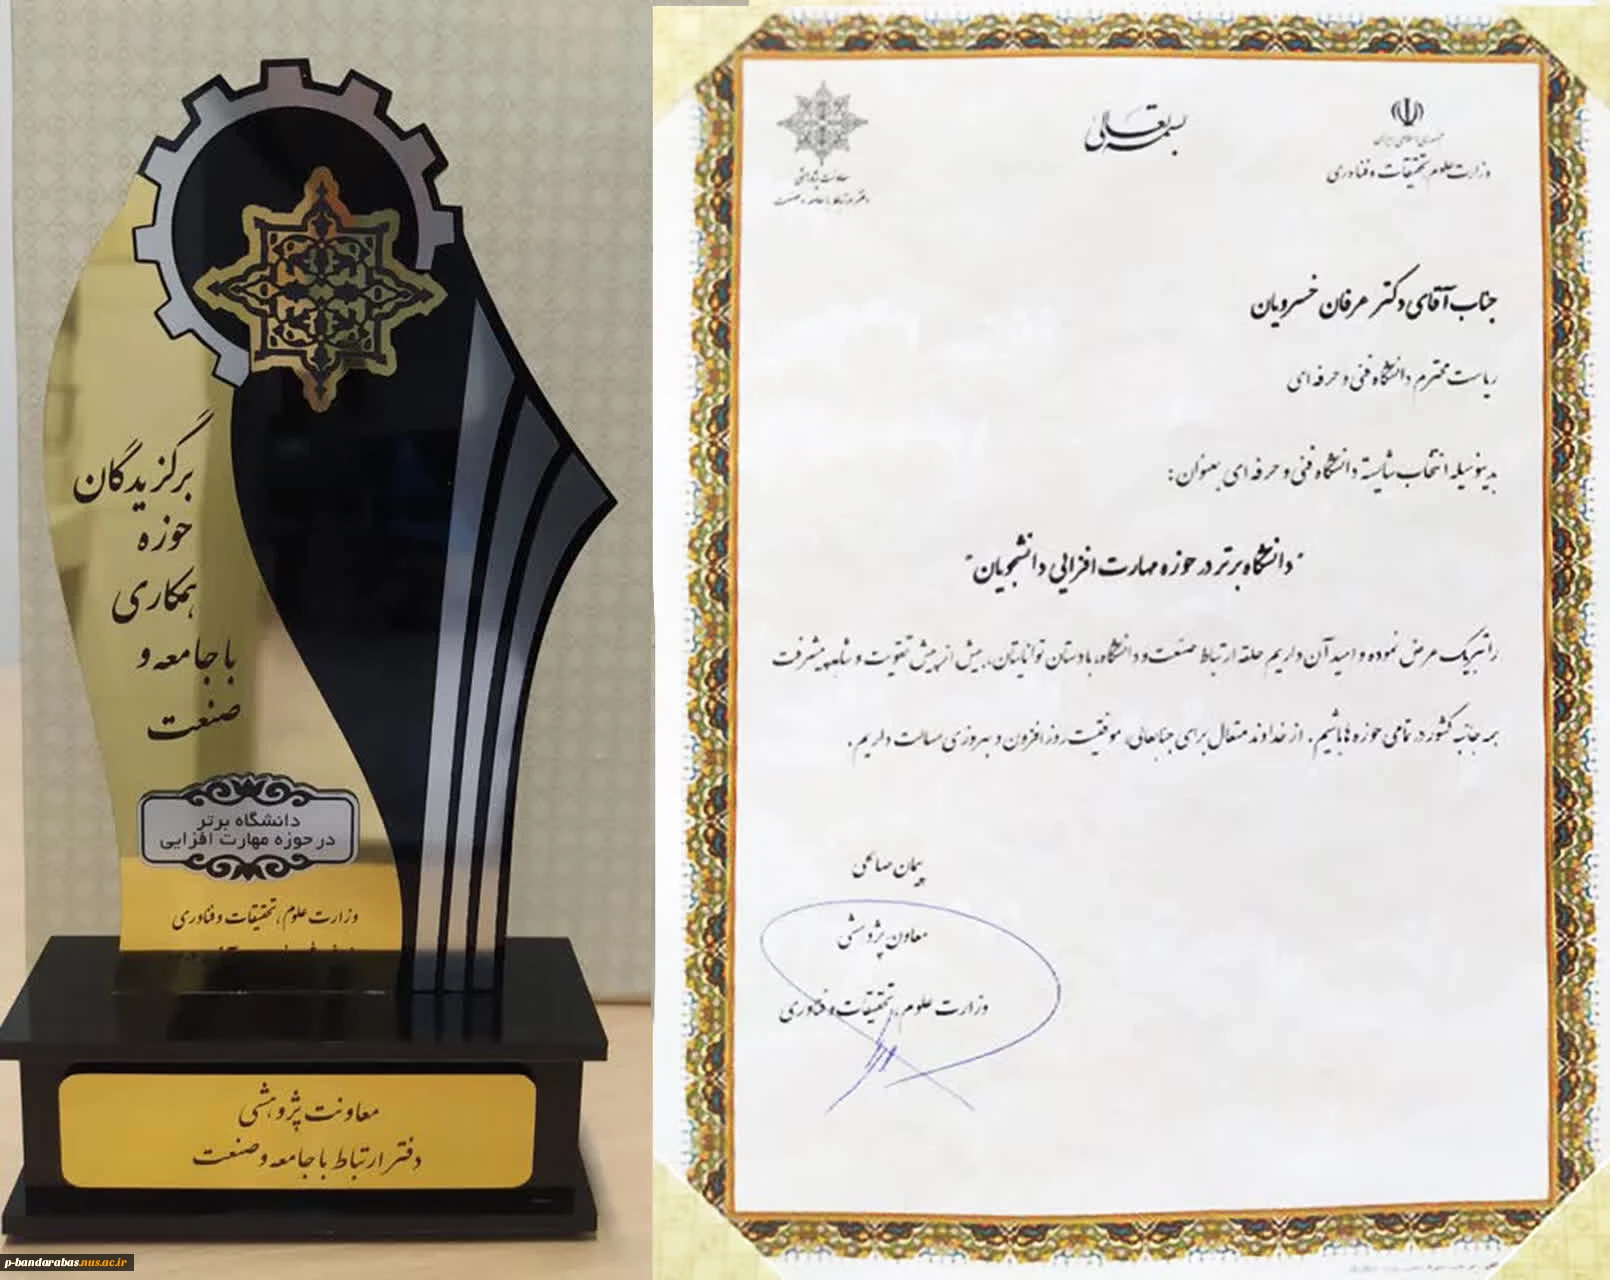 برگزیدگان
حوزه
همکاری
با جامعه و
صنعت
دانشگاه برتر
در حوزه مهارت افزایی
وزارت علوم، تحقیقات و فناوری
معاونت پژوهشی
دفتر ارتباط با جامعه و صنعت
p-bandarabas.nus.ac.ir
بسمه تعالی
جمهوری اسلامی ایران
وزارت علوم، تحقیقات و فناوری
معاونت پژوهشی
دفتر ارتباط با جامعه و صنعت
جناب آقای دکتر عرفان خسرویان
ریاست محترم دانشگاه فنی و حرفه ای
بدینوسیله انتخاب شایسته دانشگاه فنی و حرفه ای بعنوان:
"دانشگاه برتر در حوزه مهارت افزایی دانشجویان"
را تبریک عرض نموده و امید آن داریم حلقه ارتباط صنعت و دانشگاه، با دستان توانایتان، بیش از پیش تقویت و شاهد پیشرفت
همه جانبه کشور در تمامی حوزه ها باشیم. از خداوند متعال برای جنابعالی، موفقیت روز افزون و بهروزی مسالت داریم.
پیمان صالحی
معاون پژوهشی
وزارت علوم، تحقیقات و فناوری